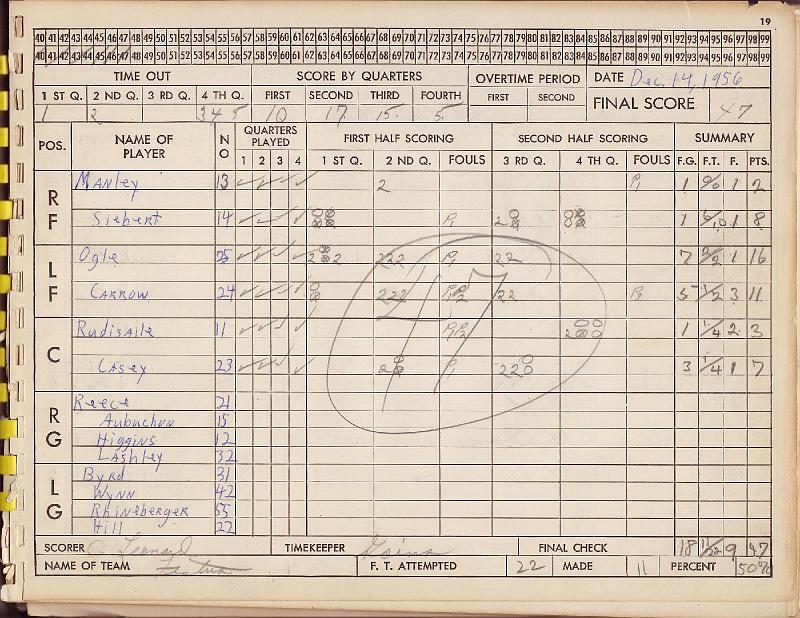 19
40 41 42 43 44 45 46 47 48 49 50 51 52 53 54 55 56 57 58 59 60 61 62 63 64 65 66 67 68 69 70 71 72 73 74 75 76 77 78 79 80 81 82 83 84 85 86 87 88 89 90 91 92 93 94 95 96 97 98 99
40 41 42 43 44 45 46 47 48 49 50 51 52 53 54 55 56 57 58 59 60 61 62 63 64 65 66 67 68 69 70 71 72 73 74 75 76 77 78 79 80 81 82 83 84 85 86 87 88 89 90 91 92 93 94 95 96 97 98 99
TIME OUT SCORE BY QUARTERS OVERTIME PERIOD DATE Dec. 14, 1956
1 ST Q. 2 ND Q. 3 RD Q. 4 TH Q. FIRST SECOND THIRD FOURTH FIRST SECOND FINAL SCORE 47
1 2 3 4 5 10 17 15 5
POS. NAME OF PLAYER NO QUARTERS PLAYED FIRST HALF SCORING SECOND HALF SCORING SUMMARY
1 2 3 4 1 ST Q. 2 ND Q. FOULS 3 RD Q. 4 TH Q. FOULS F.G. F.T. F. PTS.
RF Manley 13 2 P1 1 0/0 1 2
Siebert 14 P1 2 1 6/10 1 8
LF Ogle 25 2 2 222 P1 22 7 2/2 1 16
Carrow 24 222 P1P2 22 P3 5 1/2 3 11
C Rudisaile 11 P1P2 2 1 1/4 2 3
Casey 23 2 P1 22 3 1/4 1 7
47
RG Reece 21
Aubuchon 15
Higgins 12
Lashley 32
LG Byrd 31
Wynn 42
Rhineberger 55
Hill 22
SCORER C Leonard TIMEKEEPER Goins FINAL CHECK 18 11/22 9 47
NAME OF TEAM Festus F. T. ATTEMPTED 22 MADE 11 PERCENT 50%